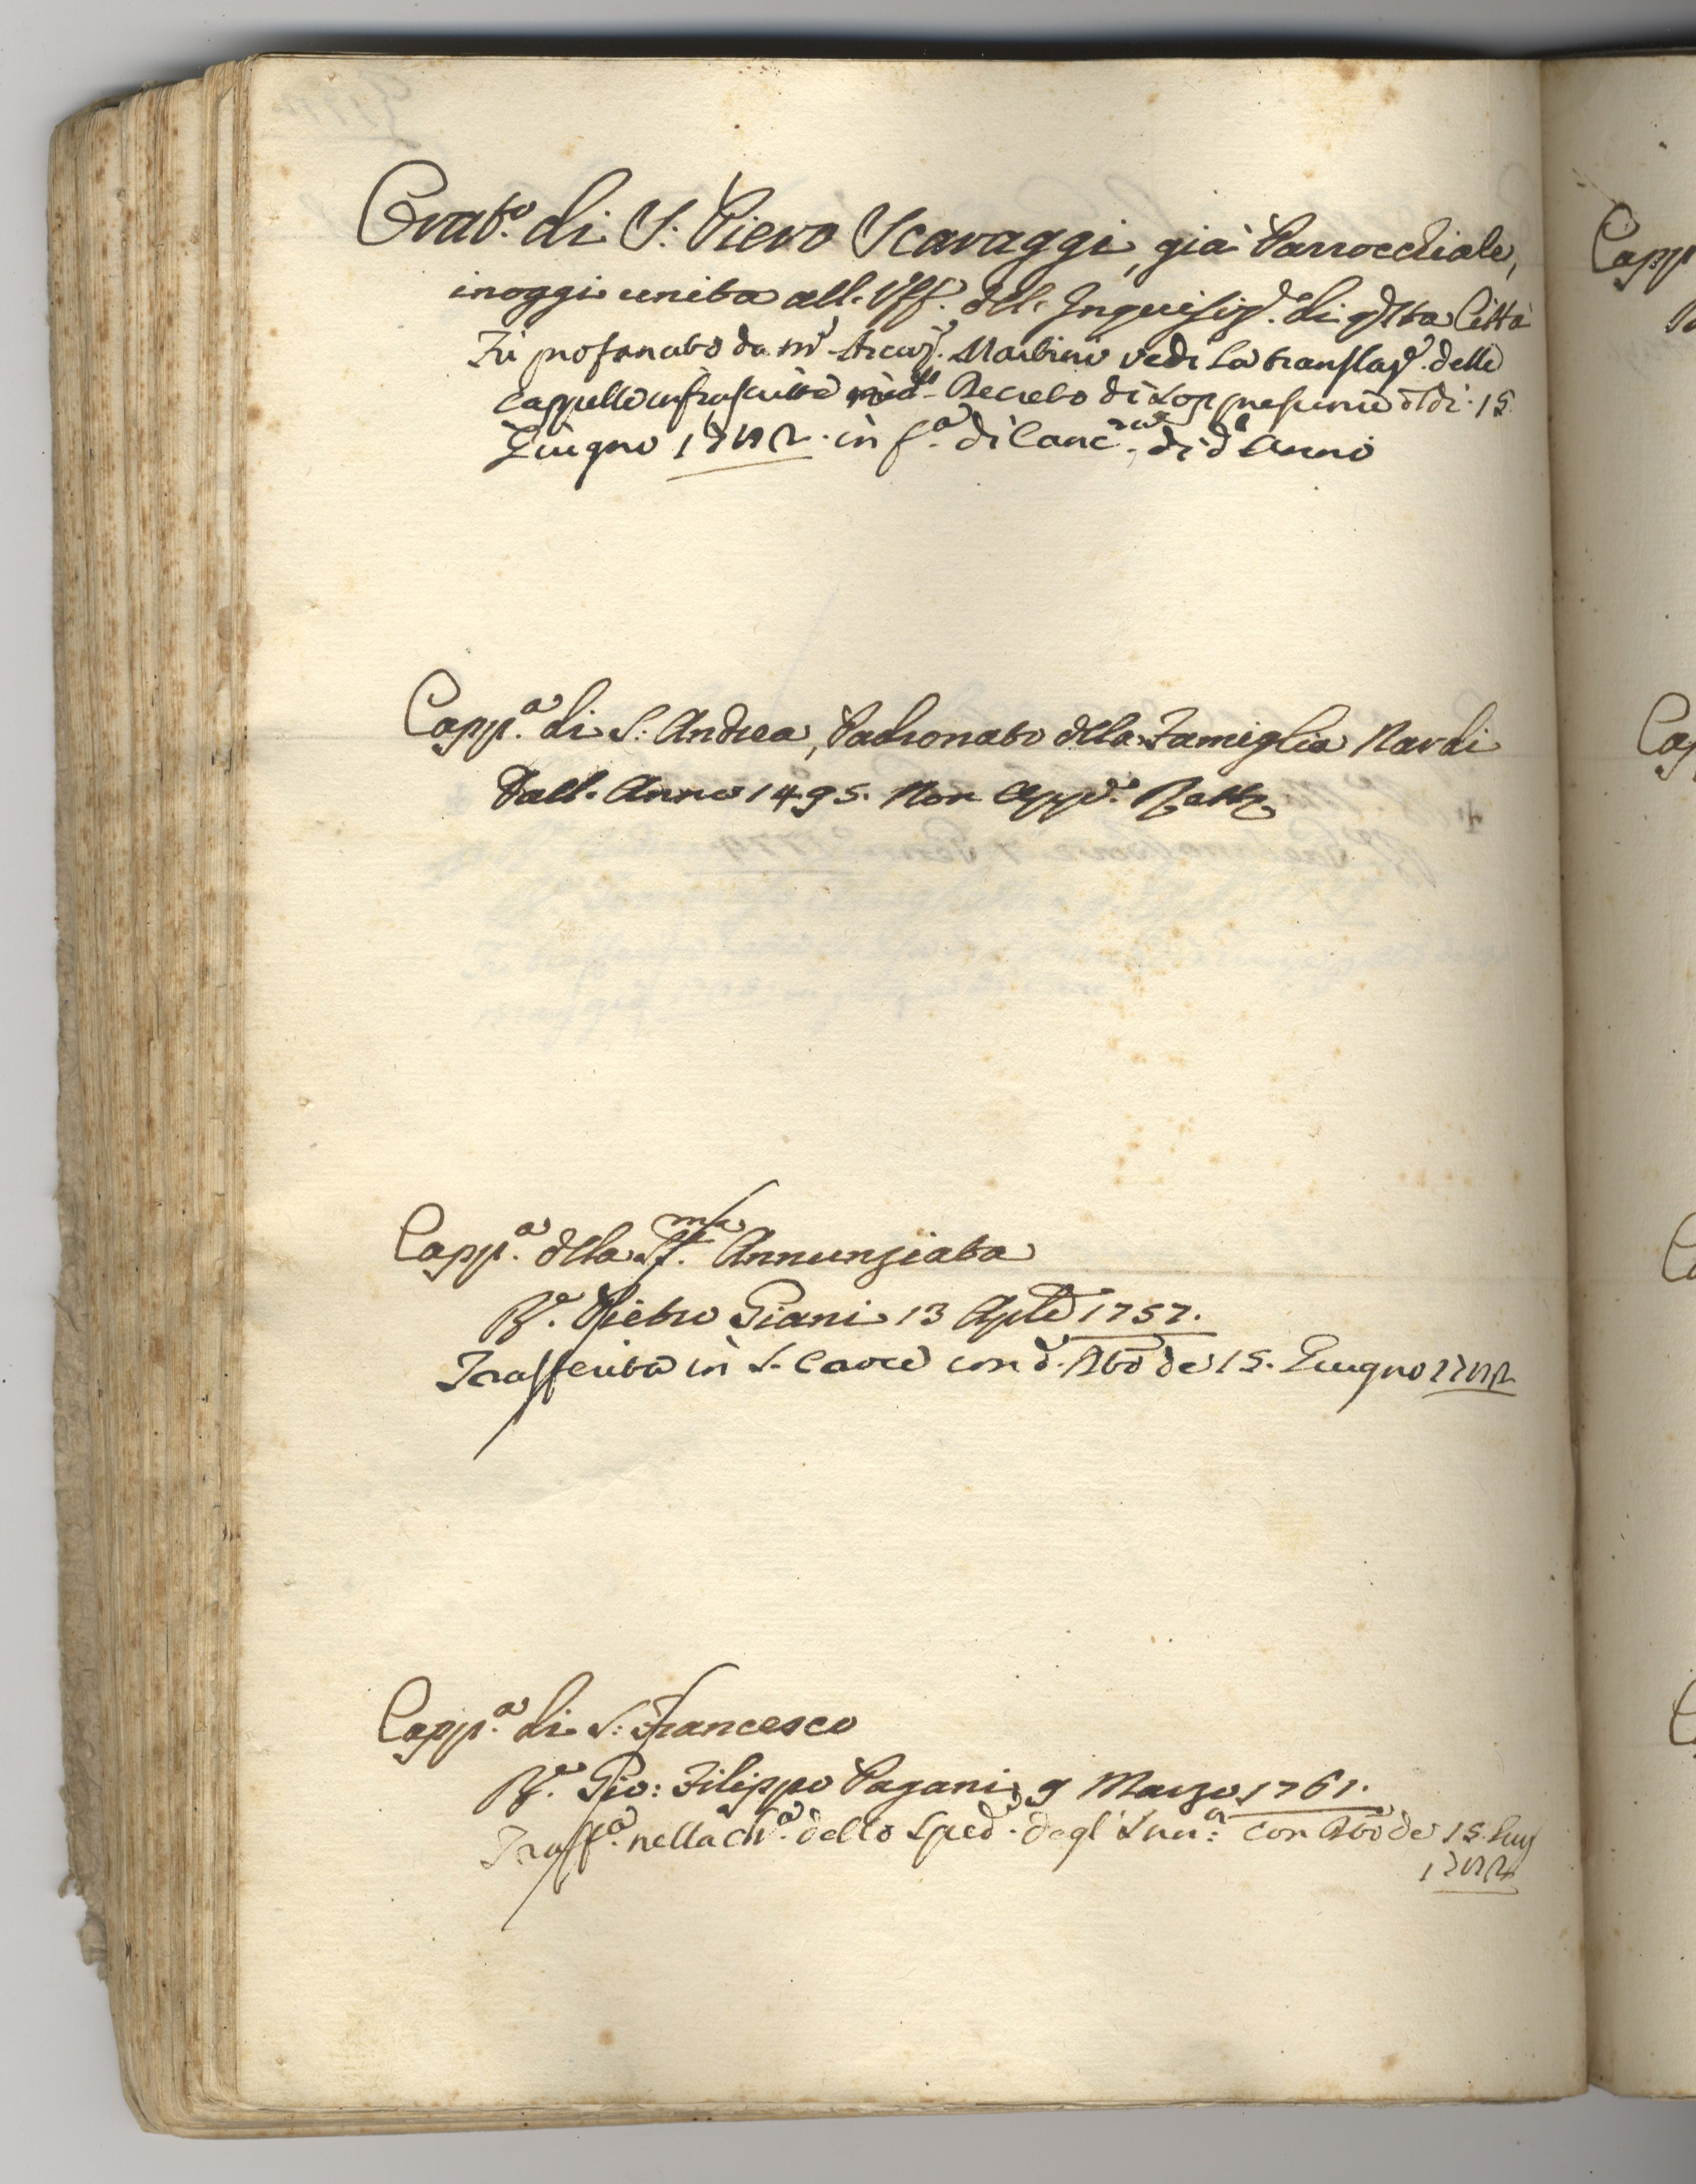 Orat.º di S: Piero Scaraggi, già Parrocchiale,
inoggi unita all. Uff.º dell. Inquisiz.e di q.sta Città
Fù profanato da M.r Arciv.o Martini vedi la translaz.e delle
cappelle infrascritte Decreto di 15
Giugno 1782. in f.a di Canc.ria di d.o Anno
Capp.a di S: Andrea, Padronato della Famiglia Nardi
Dall. Anno 1495. Non app.e Rett.
Capp.a della SS.ma Annunziata
R.e Pietro Giani 13 Aple 1757.
Trasferita in S. Croce con d.o de 15. Giugno 1782
Capp.a di S: Francesco
R.e Gio: Filippo Pagani 9 Marzo 1761.
Trasf.a nella Ch.a dello Sped.e degl' Inn.ti con de 15. Giug
1782
Capp
Cap